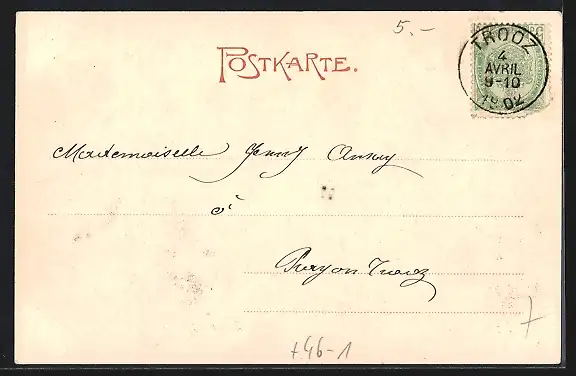 5.-
POSTKARTE.
TROOZ
4
AVRIL
9-10
1902
Mademoiselle Jenny
à
Prayon Trooz
+46-1
7